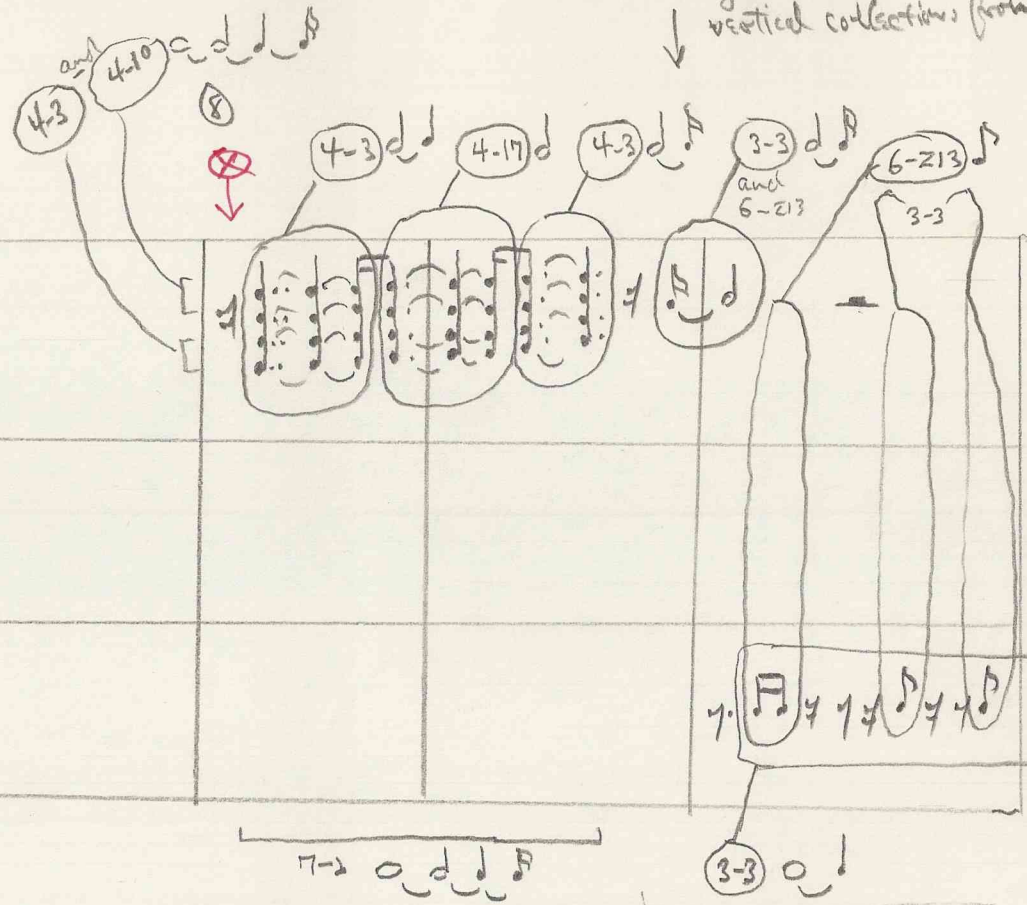 vertical collections from
and
4-10
4-3
8
4-3
4-17
4-3
3-3
and
6-Z13
6-Z13
3-3
7-2
3-3